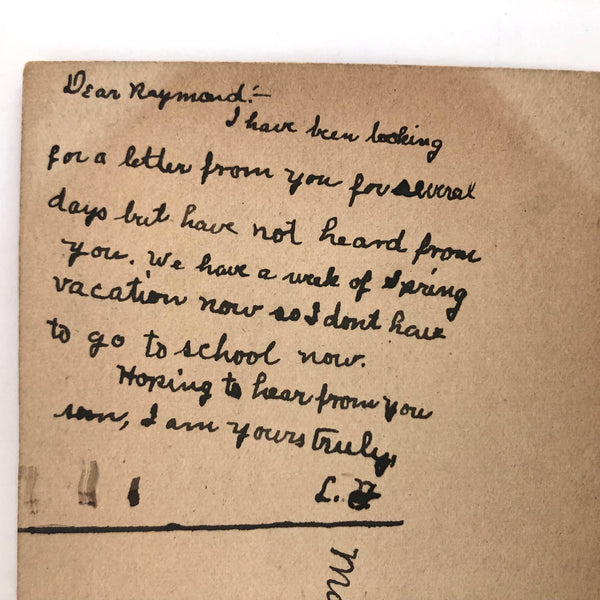 Dear Raymond:-
I have been looking
for a letter from you for several
days but have not heard from
you. We have a week of Spring
vacation now so I dont have
to go to school now.
Hoping to hear from you
soon, I am yours truly,
L.
Ma